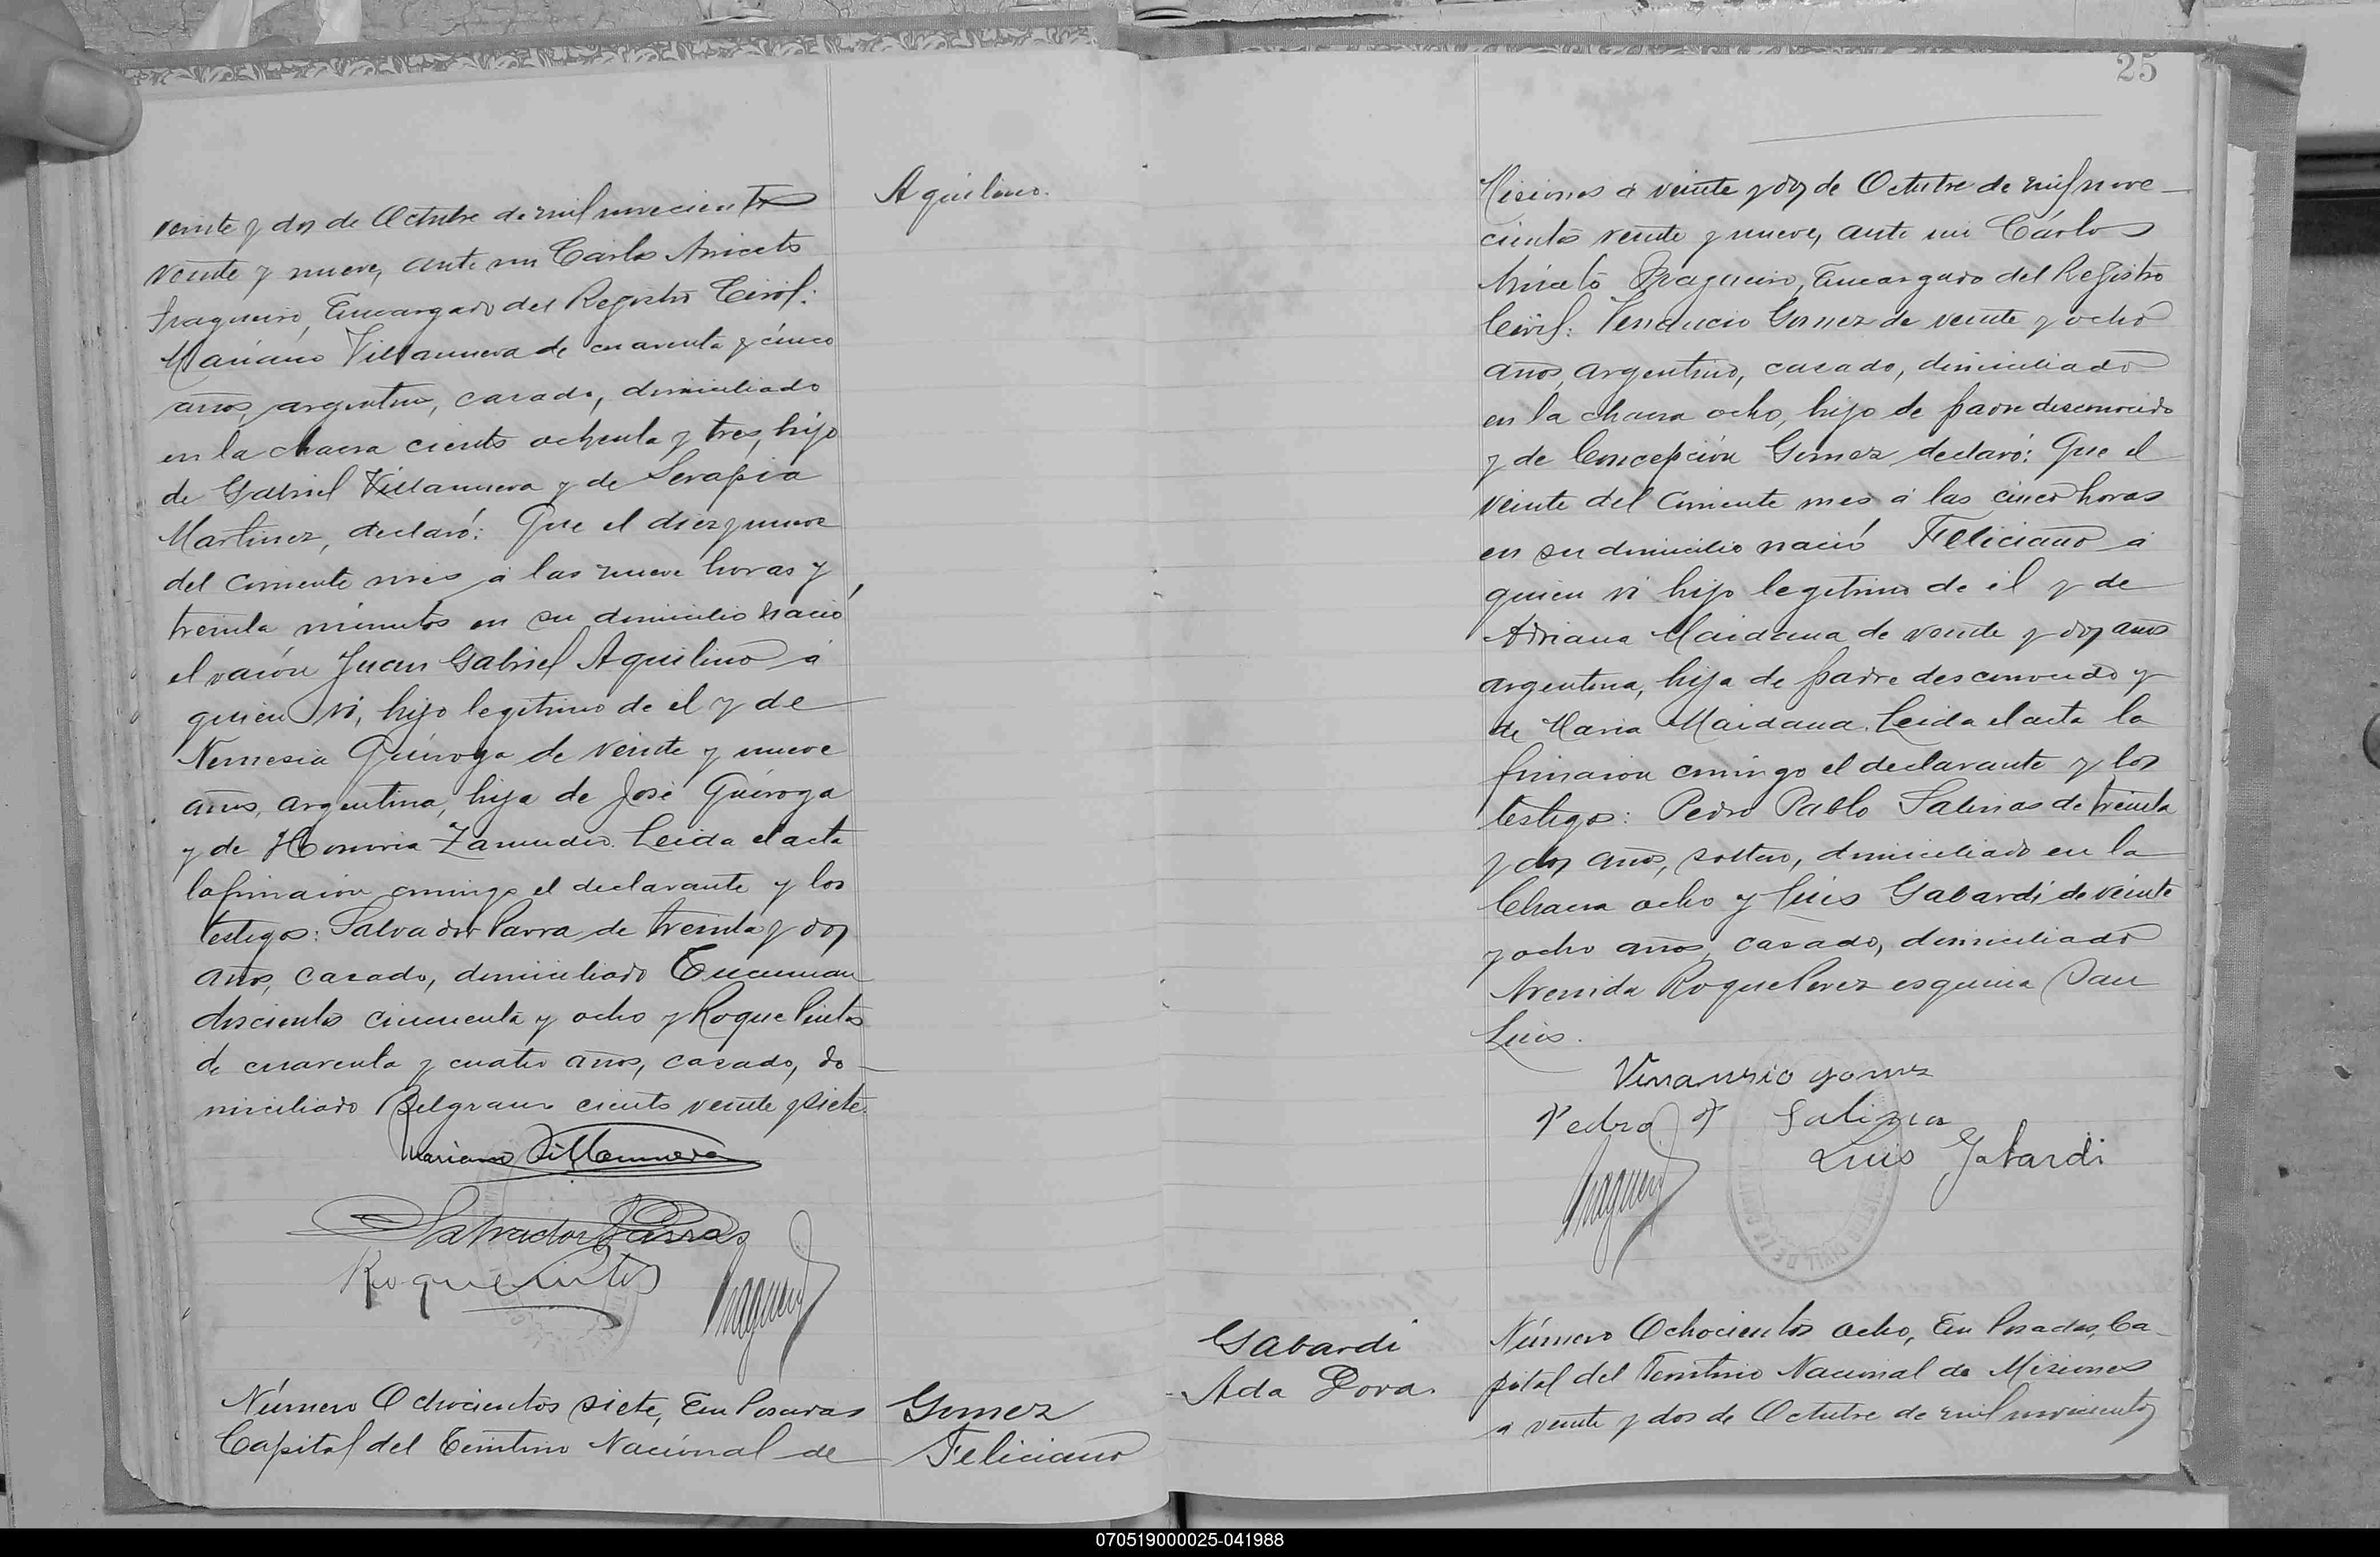 Aquilino.
veinte y dos de Octubre de mil novecientos
veinte y nueve, ante mi Carlos Aniceto
Fragueiro, Encargado del Registro Civil:
Mariano Villanueva de cuarenta y cinco
años, argentino, casado, domiciliado
en la chacra ciento ochenta y tres, hijo
de Gabriel Villanueva y de Serapia
Martinez, declaró: Que el diez y nueve
del corriente mes á las nueve horas y
treinta minutos en su domicilio nació
el varón Juan Gabriel Aquilino á
quien vi, hijo legitimo de el y de
Nemesia Quiroga de veinte y nueve
años, argentina, hija de José Quiroga
y de Honoria Zamudio. Leida el acta
la firmaron conmigo el declarante y los
testigos: Salvador Parra de treinta y dos
años, casado, domiciliado Tucuman
doscientos cincuenta y ocho y Roque Pintos
de cuarenta y cuatro años, casado, do-
miciliado Belgrano ciento veinte y siete.
Mariano Villanueva
Salvador Parra
Roque Pintos
Fragueiro
Número Ochocientos siete, En Posadas
Capital del Territorio Nacional de
Gomez
Feliciano
25
Misiones á veinte y dos de Octubre de mil nove-
cientos veinte y nueve, ante mi Cárlos
Aniceto Fragueiro, Encargado del Registro
Civil: Venancio Gomez de veinte y ocho
años, argentino, casado, domiciliado
en la chacra ocho, hijo de padre desconocido
y de Concepción Gomez declaró: Que el
veinte del corriente mes á las cinco horas
en su domicilio nació Feliciano á
quien vi hijo legitimo de el y de
Adriana Maidana de veinte y dos años
argentina, hija de padre desconocido y
de Maria Maidana. Leida el acta la
firmaron conmigo el declarante y los
testigos: Pedro Pablo Salinas de treinta
y dos años, soltero, domiciliado en la
Chacra ocho y Luis Gabardi de veinte
y ocho años, casado, domiciliado
Avenida Roque Perez esquina San
Luis.
Venansio gomez
Pedro P Salina
Luis Gabardi
Fragueiro
Gabardi
Ada Dora.
Número Ochocientos ocho, En Posadas, Ca-
pital del Territorio Nacional de Misiones
a veinte y dos de Octubre de mil novecientos
070519000025-041988